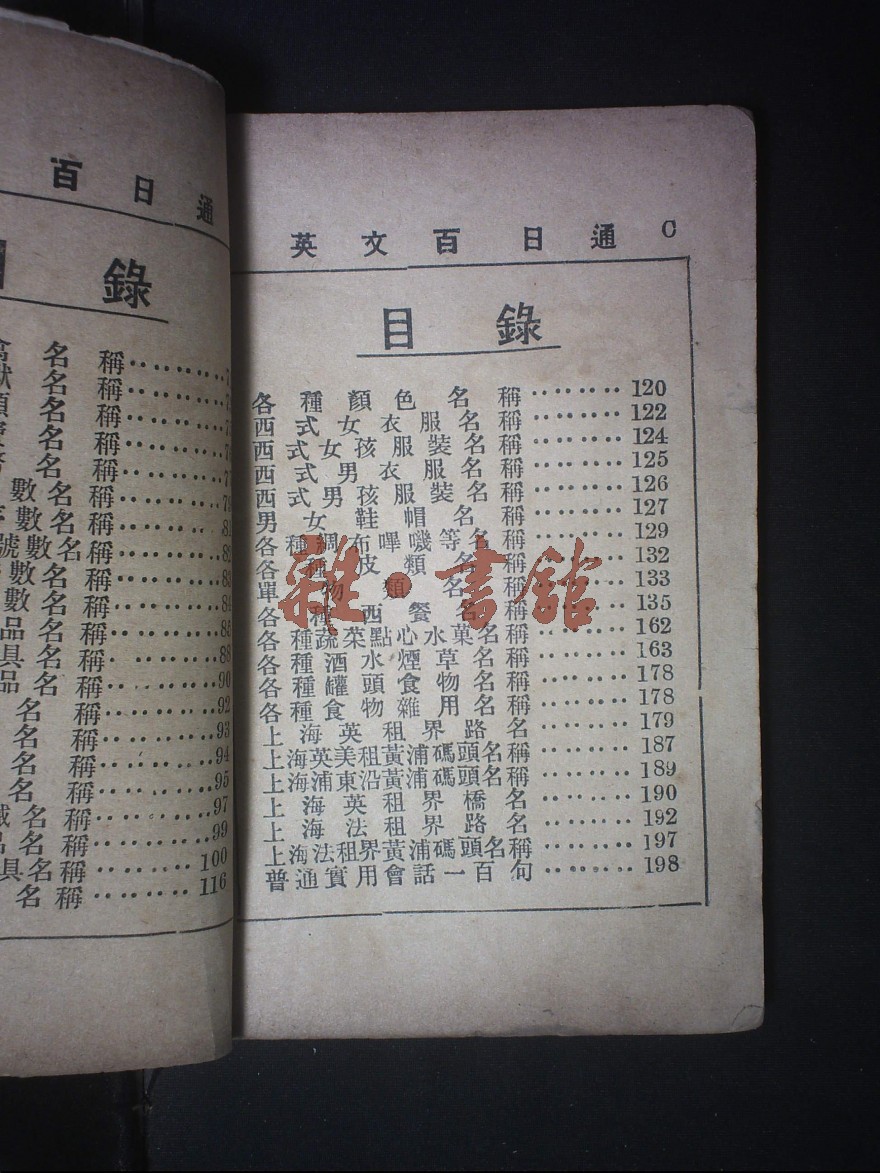 百日通
錄
名稱
名稱
名稱
名稱
名稱………77
數名稱………79
數名稱………81
號數名稱………82
數名稱………83
數名稱………84
品名稱………85
具名稱………88
品名稱………90
名稱………92
名稱………93
名稱………94
名稱………95
名稱………97
名稱………99
具名稱………100
名稱………116
英文百日通 C
目錄
各種顏色名稱………120
西式女衣服名稱………122
西式女孩服裝名稱………124
西式男衣服名稱………125
西式男孩服裝名稱………126
男女鞋帽名稱………127
各種綢布嗶嘰等名稱………129
各種皮類名稱………132
單物類名稱………133
各種西餐名稱………135
各種蔬菜點心水菓名稱………162
各種酒水煙草名稱………163
各種罐頭食物名稱………178
各種食物雜用名稱………178
上海英租界路名………179
上海英美租黃浦碼頭名稱………187
上海浦東沿黃浦碼頭名稱………189
上海英租界橋名………190
上海法租界路名………192
上海法租界黃浦碼頭名稱………197
普通實用會話一百句………198
雜·書館